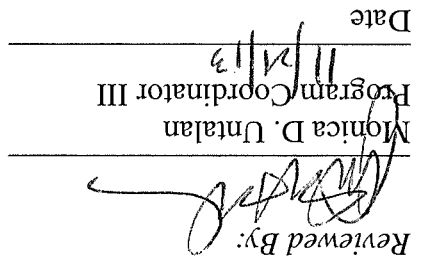 Reviewed By:
Monica D. Untalan
Program Coordinator III
11/21/13
Date